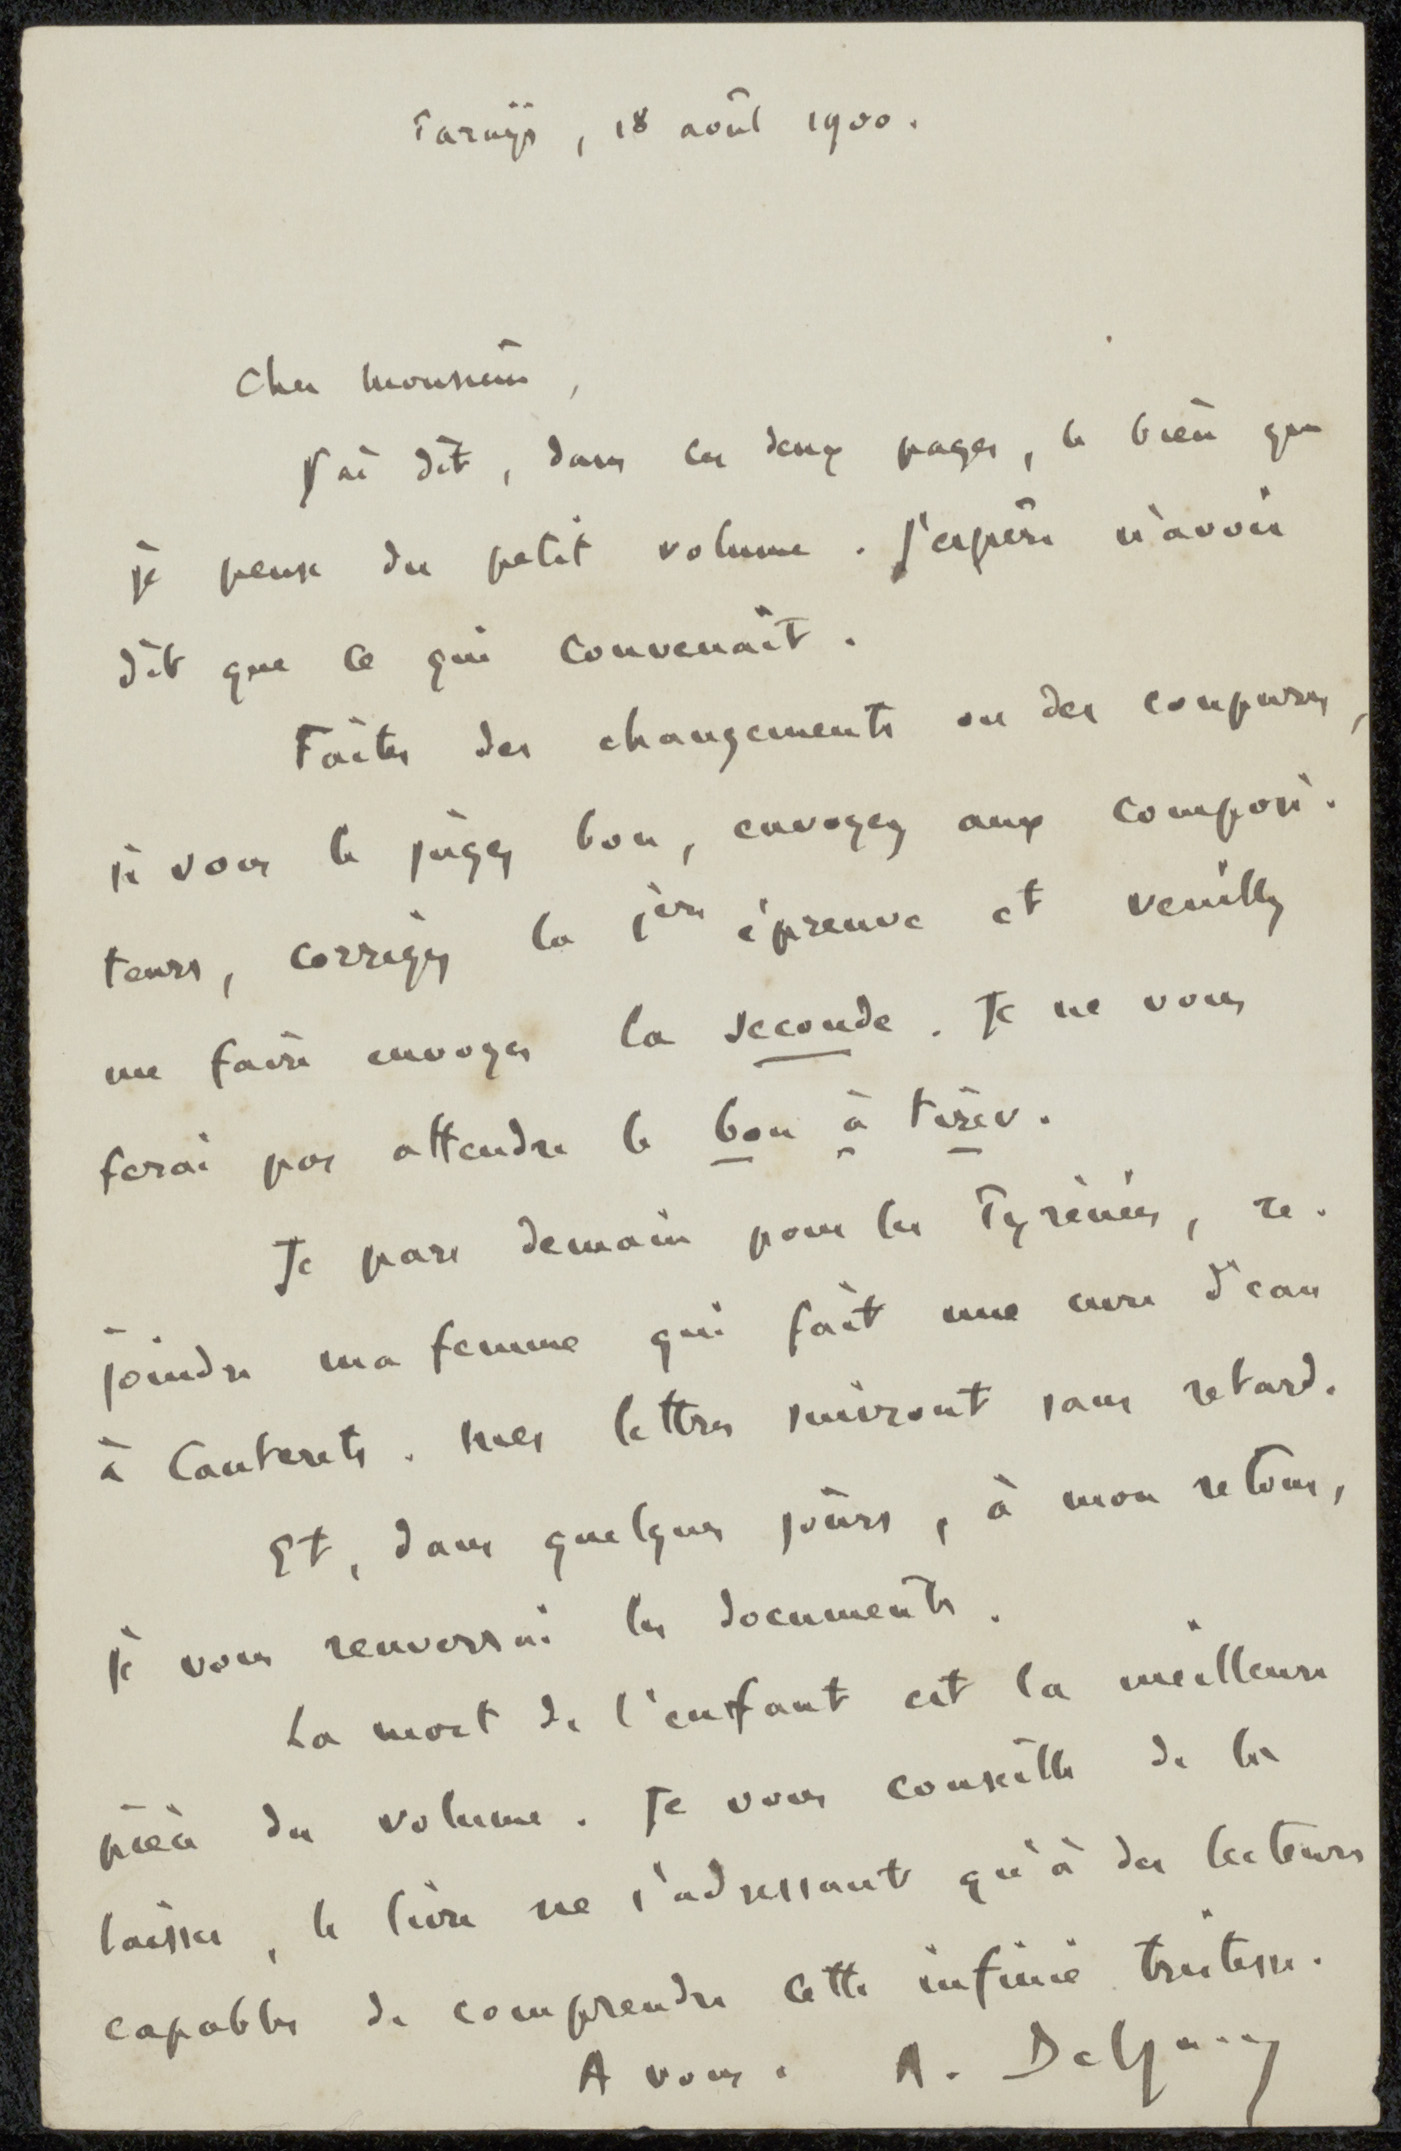 18 août 1900.
Cher Monsieur,
J'ai dit, dans les deux pages, le bien que
je pense du petit volume. J'espère n'avoir
dit que ce qui convenait.
Faites des changements ou des coupures,
si vous le jugez bon, envoyez aux composi-
teurs, corrigez la 1ère épreuve et veuillez
me faire envoyer la seconde. Je ne vous
ferai pas attendre le bon à tirer.
Je pars demain pour les Pyrénées, re-
joindre ma femme qui fait une cure d'eau
à Cauterets. Mes lettres suivront sans retard.
Et, dans quelques jours, à mon retour,
je vous renverrai les documents.
La mort de l'enfant est la meilleure
pièce du volume. Je vous conseille de la
laisser, le livre ne s'adressant qu'à des lecteurs
capables de comprendre cette infinie tristesse.
A vous. A.